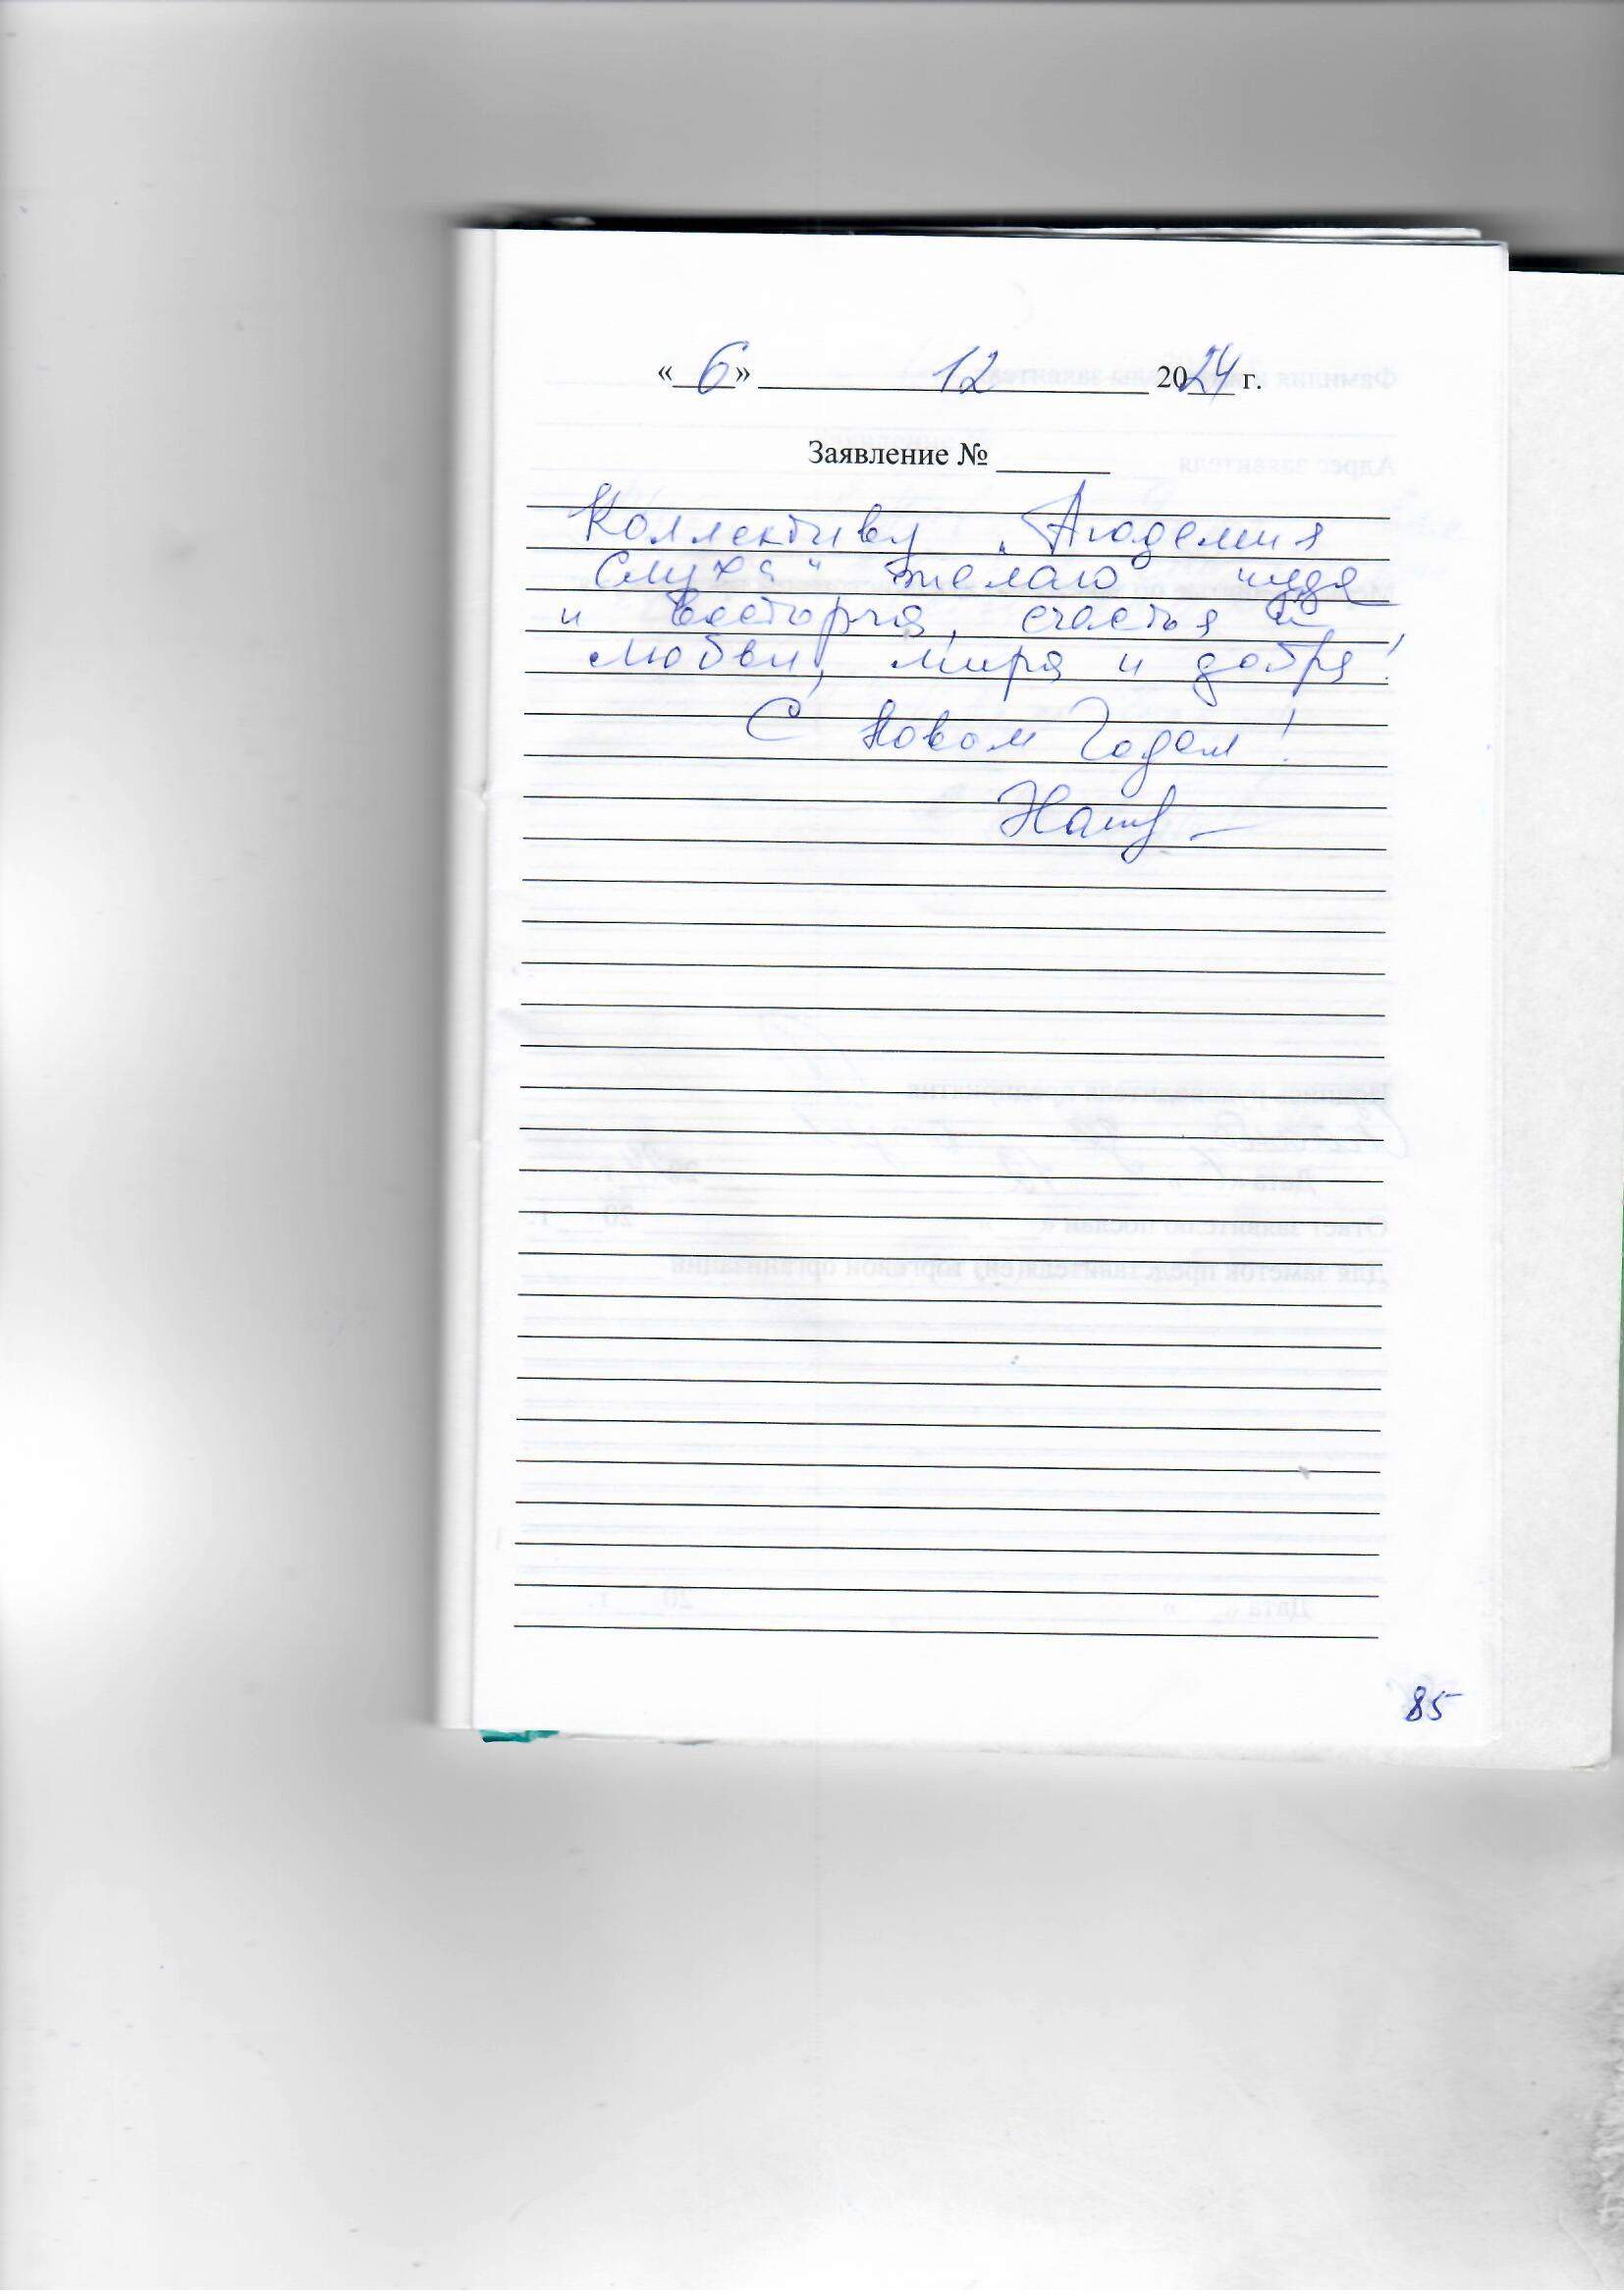 «6» 12 2024 г.
Заявление № ______
Коллективу „Академия
Слуха" желаю чуда
и восторга, счастья и
любви, мира и добра!
С Новом Годом!
85